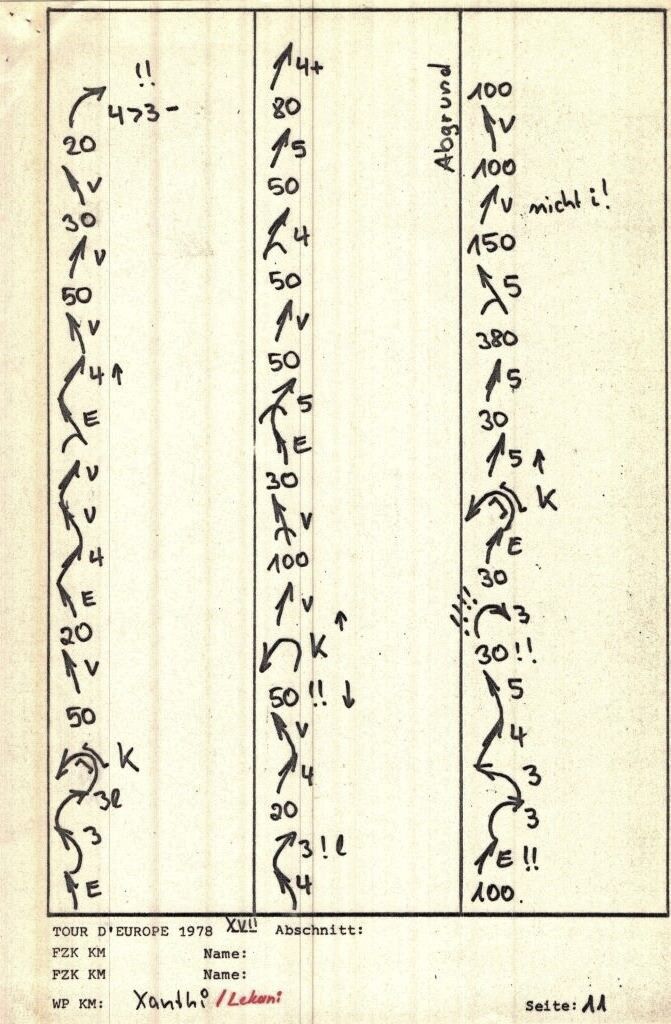 !!
4>3-
20
V
30
V
50
V
4 ↑
E
V
V
4
E
20
V
50
K
3l
3
E
4+
80
5
50
4
50
V
50
5
E
30
V
100
V
↑
K
50 !! ↓
V
4
20
3!l
4
Abgrund
100
V
100
V nicht i!
150
5
380
5
30
5 ↑
K
E
30
!!!!
3
30!!
5
4
3
3
E!!
100.
TOUR D'EUROPE 1978 XVII Abschnitt:
FZK KM Name:
FZK KM Name:
WP KM: Xanthi /Lekani Seite: 11